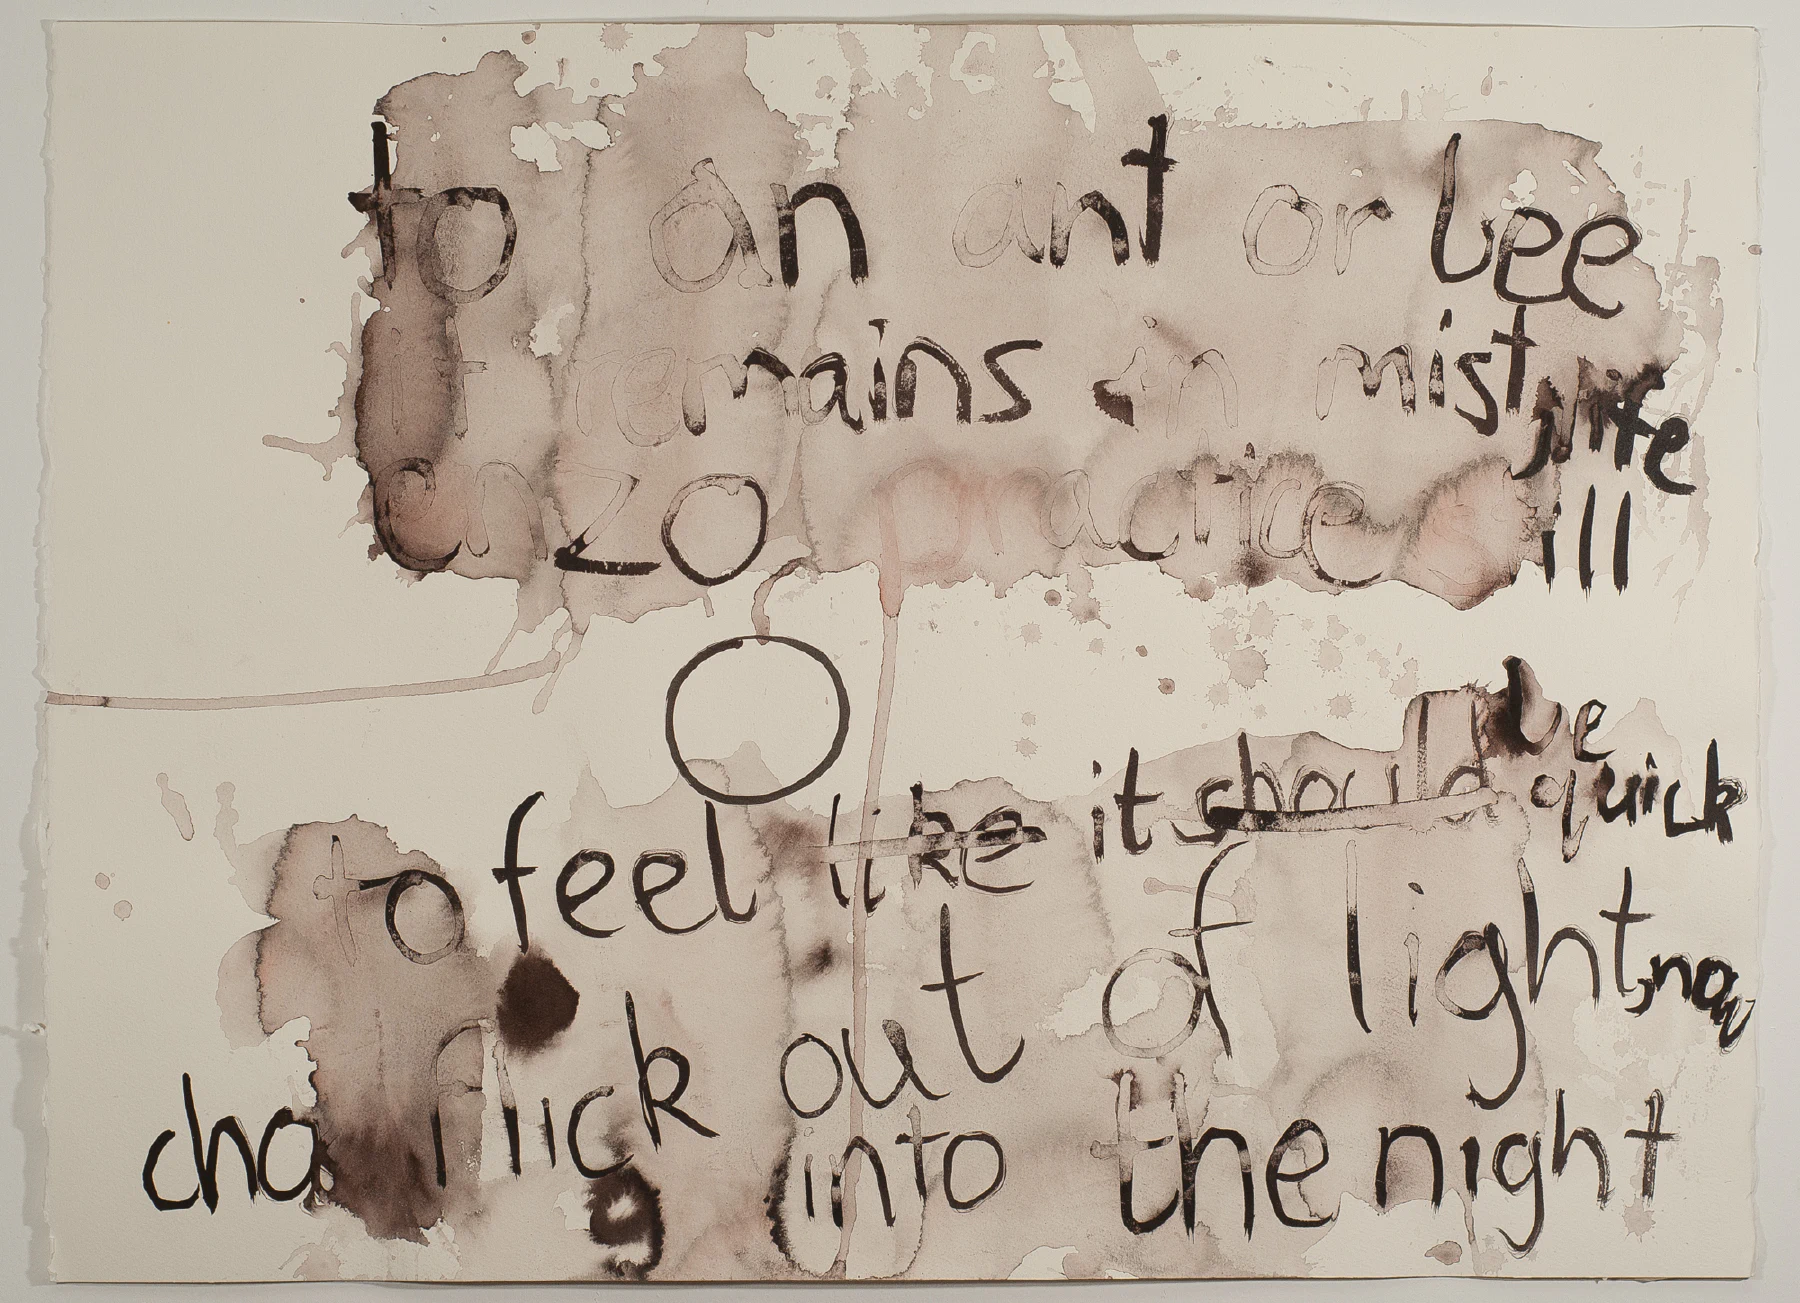 to an ant or bee
it remains in mist
enzo practices
ill
be
to feel like it should quick
flick out of light, now
cha into the night